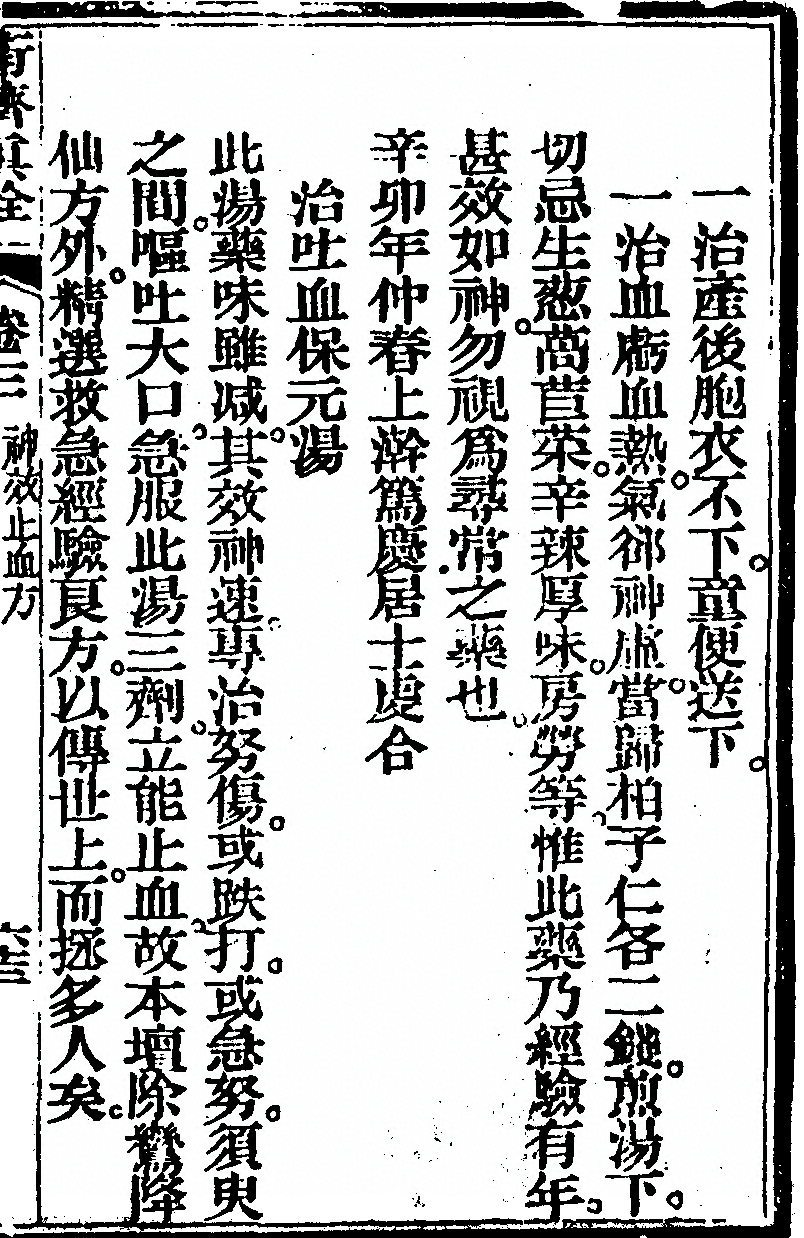 一治產後胞衣不下童便送下
一治血虧血熱氣郤神虛當歸柏子仁各二錢煎湯下
切忌生葱萵苣菜辛辣厚味房勞等惟此藥乃經驗有年
甚效如神勿視爲尋常之藥也
辛卯年仲春上澣篤慶居士虔合
治吐血保元湯
此湯藥味雖减其效神速專治努傷或跌打或急努須臾
之間嘔吐大口急服此湯三劑立能止血故本壇除鸞降
仙方外精選救急經驗良方以傳世上而拯多人矣
卷三 神效止血方